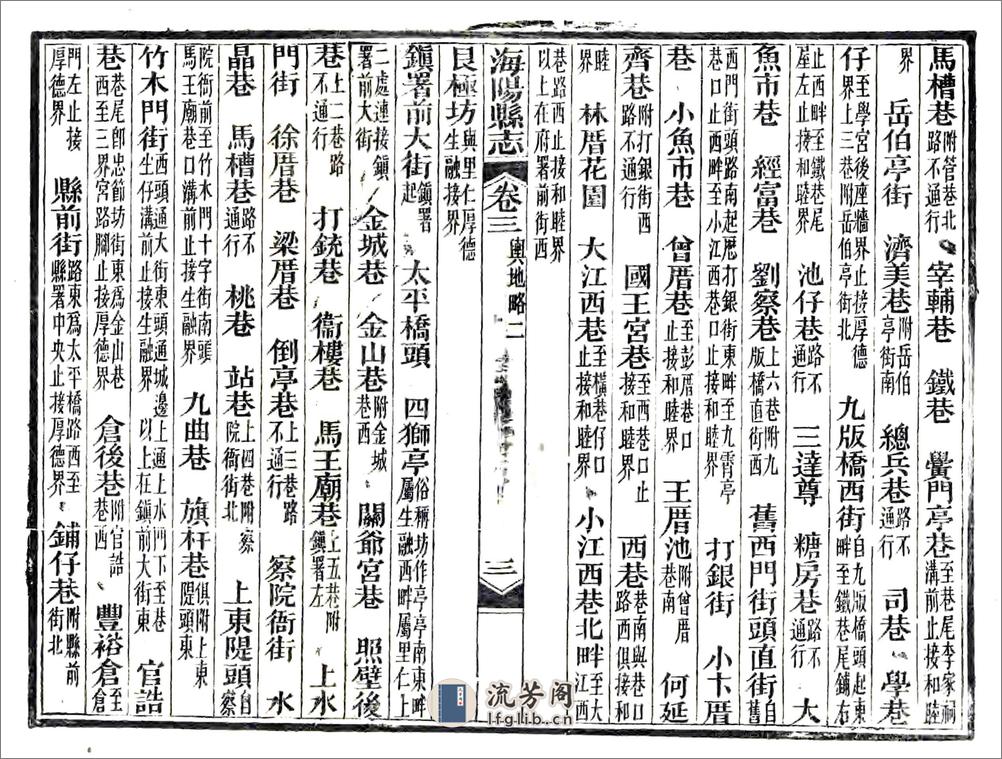 馬槽巷附管巷北路不通行 宰輔巷 鐵巷 黌門亭巷至巷尾李家祠溝前止接和睦
界 岳伯亭街 濟美巷附岳伯亭街南 總兵巷路不通行 司巷 學巷
仔至學宮後座牆外止接厚德界上三巷附岳伯亭街北 九版橋西街自九版橋頭起東畔至鐵巷尾鋪右
止西畔至鐵巷尾屋左止接和睦界 池仔巷路不通行 三達尊 糖房巷路不通行 大
魚市巷 經富巷 劉察巷上六巷附九版橋直街 舊西門街頭直街自舊
西門街頭路南起厝打銀街東畔至九霄亭巷口止西畔至小江西巷口止接和睦界 打銀街 小卞厝
巷 小魚市巷 曾厝巷至彭厝巷口止接和睦界 王厝池巷附曾厝巷南 何延
齊巷附打銀街西路不通行 國王宮巷至西巷口止接和睦界 西巷巷南與巷口路西俱接和
睦界 林厝花園 大江西巷至橫巷仔口止接和睦界 小江西巷北畔至大江西
巷路西止接和睦界以上在府署前街西
海陽縣志 卷三 輿地略二 三
艮極坊與里仁厚德生融接界
鎮署前大街鎮署起 太平橋頭 四獅亭俗稱坊作亭亭南東畔屬生融西畔屬里仁上
二處連接鎮署前大街 金城巷 金山巷附金城巷西 關爺宮巷 照壁後
巷上二巷路不通行 打銃巷 衞樓巷 馬王廟巷上五巷附鎮署左 上水
門街 徐厝巷 梁厝巷 倒亭巷上三巷路不通行 察院衙街 水
晶巷 馬槽巷路不通行 桃巷 站巷上四巷附察院衙街北 上東隄頭自察
院衙前至竹木門十字街南頭馬王廟巷口溝前止接生融界 九曲巷 旗杆巷俱附上東隄頭東
竹木門街西頭通大街東頭通城邊上通上水門下至巷坐仔溝前止接生融界以上在鎮前大街東 官誥
巷巷尾卽忠節坊街東爲金山巷西至三界宮路腳止接厚德界 倉後巷附官誥巷西 豐裕倉至倉
門左止接厚德界 縣前街路東為太平橋路西至縣署中央止接厚德界 鋪仔巷附縣前街北
流芳阁
lfglib.cn